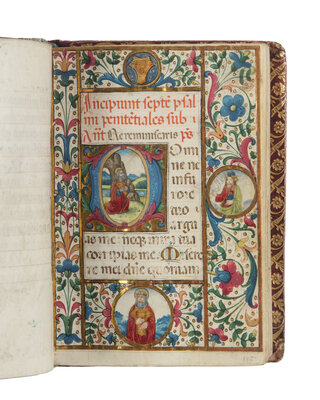 Incipiunt septē psal
mi penitētiales sub
Ant Ne reminiscaris ps
Domi
ne ne
in fu
rore
tuo
argu
as me: neq; in ira tua
corripias me. Misere
re mei dn̄e quoniam